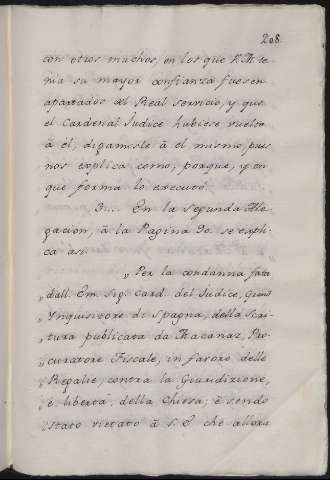 208.
con otros muchos, en los que V. M. te
nia su mayor confianza fuesen
apartados del Real servicio, y que
el Cardenal Judice hubiese vuelto
à él; digamosle à el mismo, pues
nos explica como, porque, y en
que forma lo executó.
3.... En la segunda Ale
gacion, à la Pagina 90 se expli
ca asi.
„Per la condanna fata
„dall Em. Sig. Card. del Judice, Grand
„Ynquisitore di Spagna, della Scri
„tura publicata da Macanaz, Pro
„curatore Fiscale, in favore delle
„Regalie, contra la Giuridizione,
„è libertà, della Chiesa; è sendo
„stato vietato à S. E. che allora